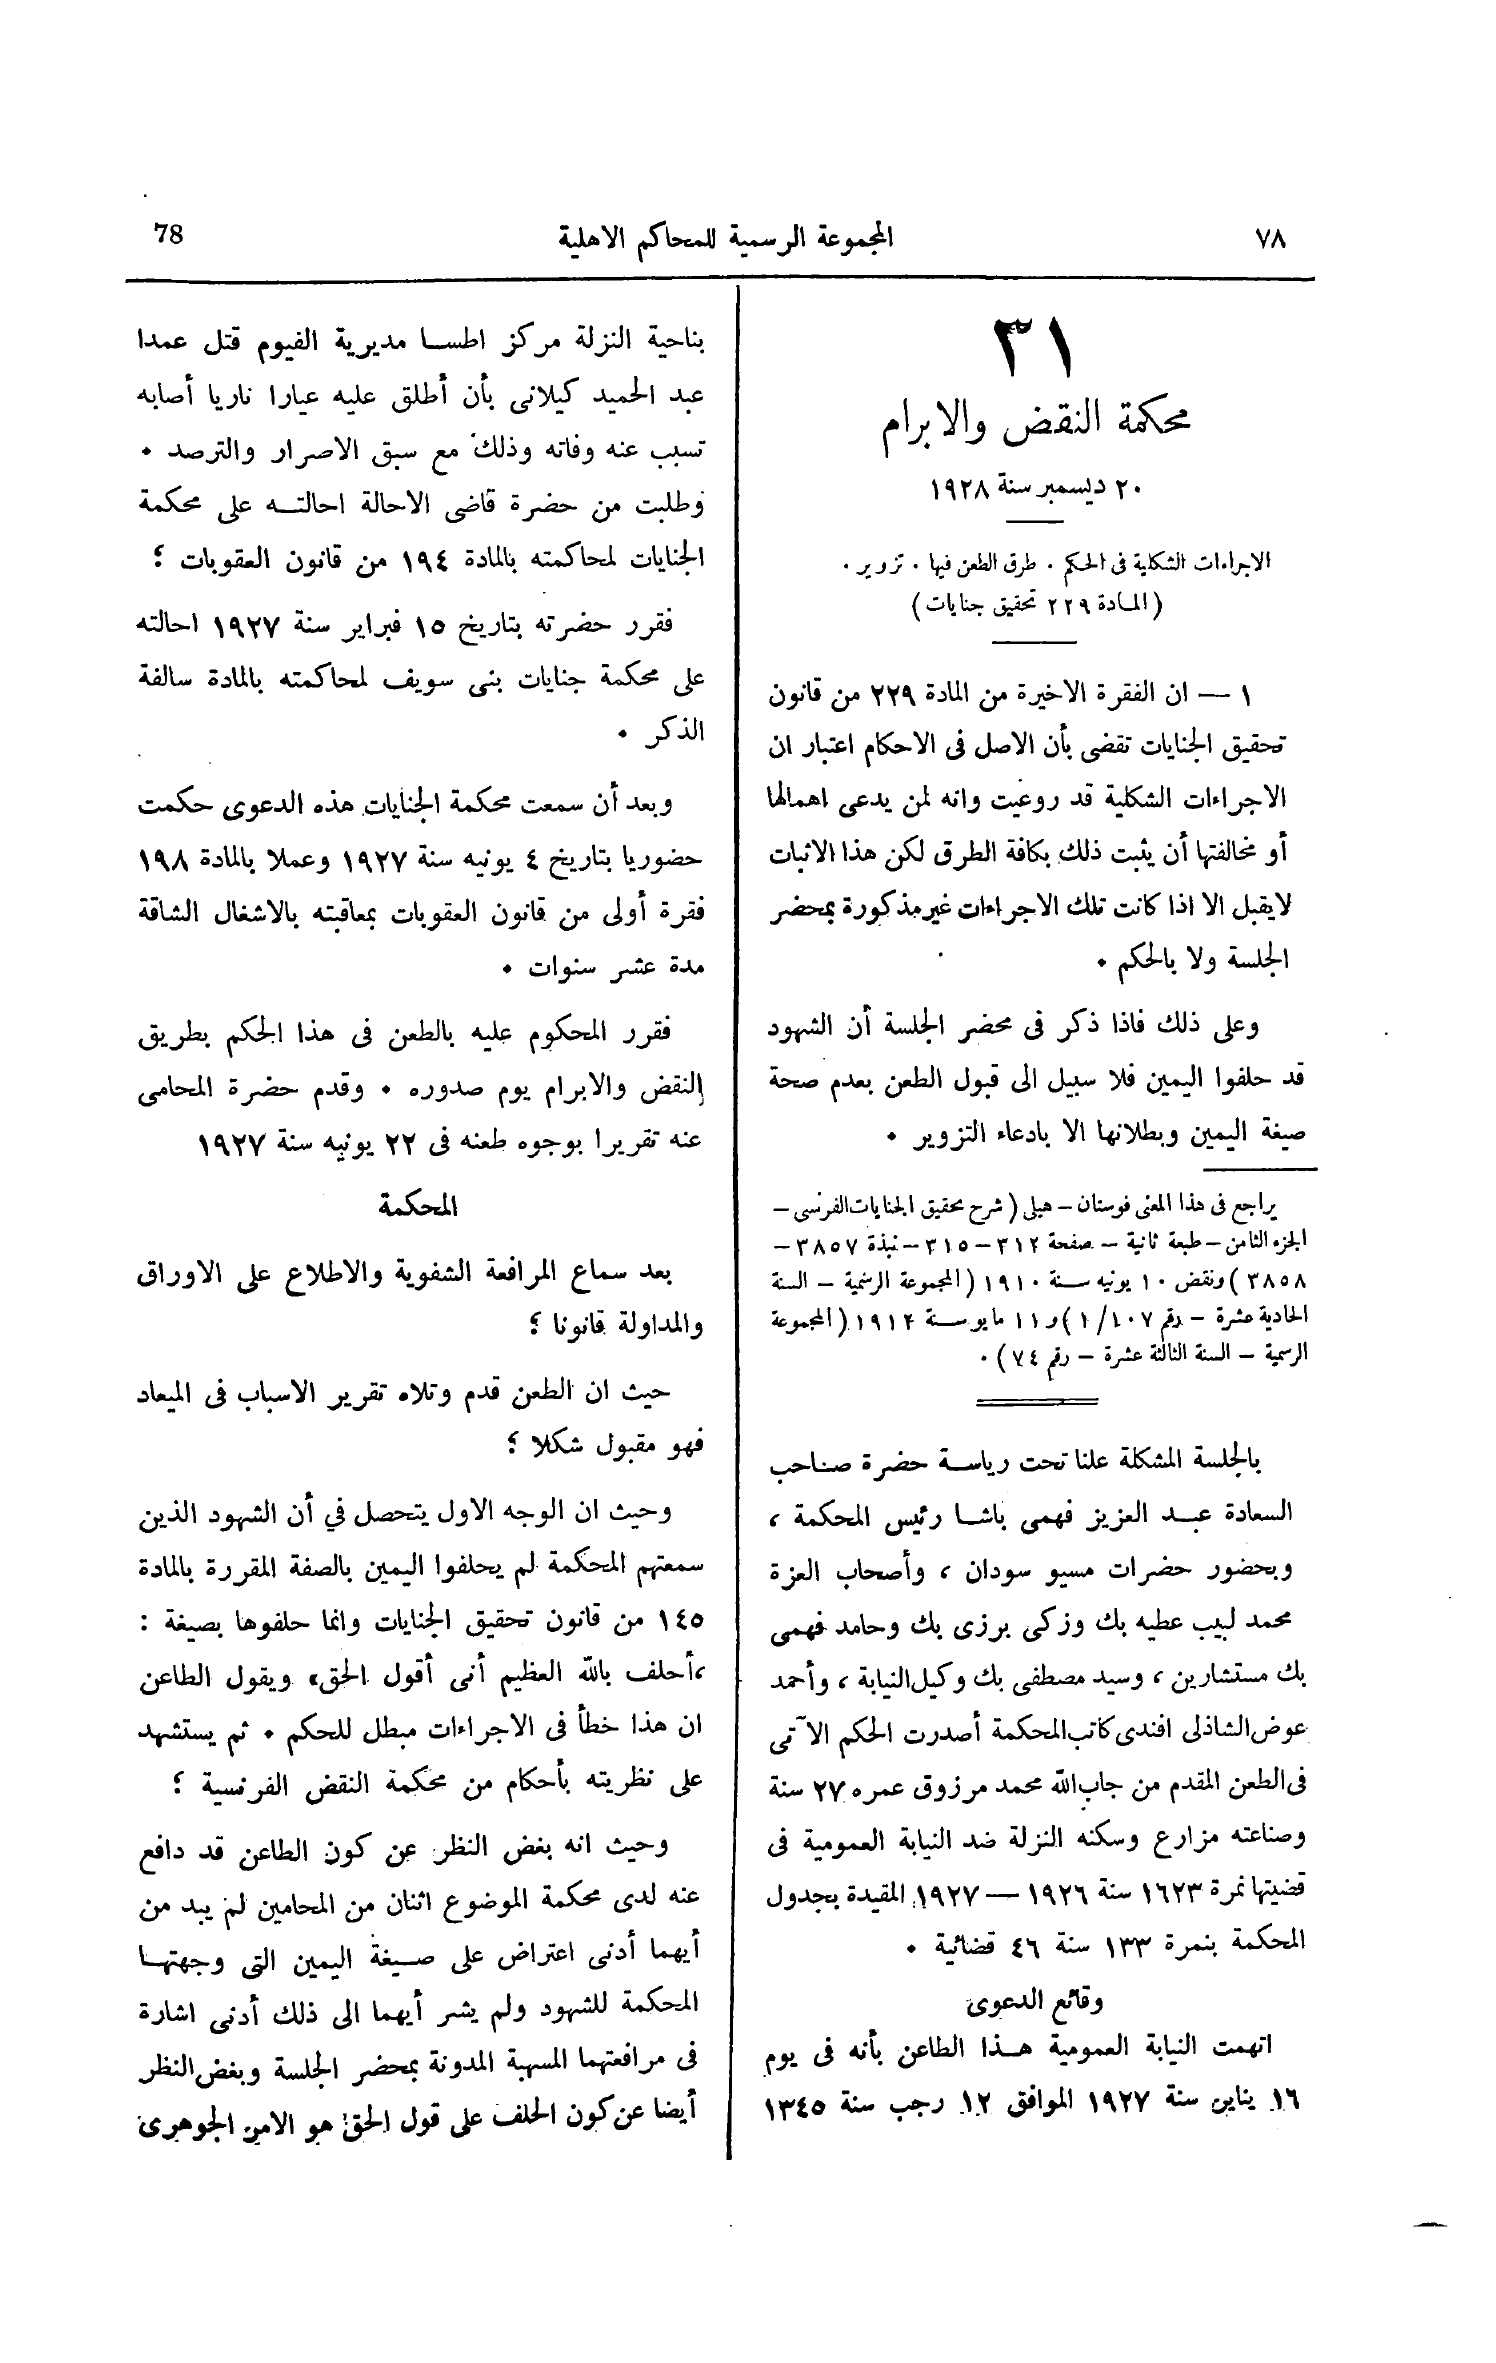 ٧٨
المجموعة الرسمية للمحاكم الاهلية
78
٣١
محكمة النقض والابرام
٢٠ ديسمبر سنة ١٩٢٨
الاجراءات الشكلية فى الحكم . طرق الطعن فيها . تزوير .
(المادة ٢٢٩ تحقيق جنايات)
١ — ان الفقرة الاخيرة من المادة ٢٢٩ من قانون
تحقيق الجنايات تقضى بأن الاصل فى الاحكام اعتبار ان
الاجراءات الشكلية قد روعيت وانه لمن يدعى اهمالها
أو مخالفتها أن يثبت ذلك بكافة الطرق لكن هذا الاثبات
لايقبل الا اذا كانت تلك الاجراءات غير مذكورة بمحضر
الجلسة ولا بالحكم .
وعلى ذلك فاذا ذكر فى محضر الجلسة أن الشهود
قد حلفوا اليمين فلا سبيل الى قبول الطعن بعدم صحة
صيغة اليمين وبطلانها الا بادعاء التزوير .
يراجع فى هذا المعنى فوستان – هيلى (شرح تحقيق الجنايات الفرنسى –
الجزء الثامن – طبعة ثانية – صفحة ٣١٢ – ٣١٥ – نبذة ٣٨٥٧ –
٣٨٥٨) ونقض ١٠ يونيه سنة ١٩١٠ (المجموعة الرسمية – السنة
الحادية عشرة – رقم ١/١٠٧) و ١١ مايو سنة ١٩١٢ (المجموعة
الرسمية – السنة الثالثة عشرة – رقم ٧٤) .
بالجلسة المشكلة علنا تحت رياسة حضرة صاحب
السعادة عبد العزيز فهمى باشا رئيس المحكمة ،
وبحضور حضرات مسيو سودان ، وأصحاب العزة
محمد لبيب عطيه بك وزكى برزى بك وحامد فهمى
بك مستشارين ، وسيد مصطفى بك وكيل النيابة ، وأحمد
عوض الشاذلى افندى كاتب المحكمة أصدرت الحكم الآتى
فى الطعن المقدم من جاب الله محمد مرزوق عمره ٢٧ سنة
وصناعته مزارع وسكنه النزلة ضد النيابة العمومية فى
قضيتها نمرة ١٦٢٣ سنة ١٩٢٦ — ١٩٢٧ المقيدة بجدول
المحكمة بنمرة ١٣٣ سنة ٤٦ قضائية .
وقائع الدعوى
اتهمت النيابة العمومية هذا الطاعن بأنه فى يوم
١٦ يناير سنة ١٩٢٧ الموافق ١٢ رجب سنة ١٣٤٥
بناحية النزلة مركز اطسا مديرية الفيوم قتل عمدا
عبد الحميد كيلانى بأن أطلق عليه عيارا ناريا أصابه
تسبب عنه وفاته وذلك مع سبق الاصرار والترصد .
وطلبت من حضرة قاضى الاحالة احالته على محكمة
الجنايات لمحاكمته بالمادة ١٩٤ من قانون العقوبات ؛
فقرر حضرته بتاريخ ١٥ فبراير سنة ١٩٢٧ احالته
على محكمة جنايات بنى سويف لمحاكمته بالمادة سالفة
الذكر .
وبعد أن سمعت محكمة الجنايات هذه الدعوى حكمت
حضوريا بتاريخ ٤ يونيه سنة ١٩٢٧ وعملا بالمادة ١٩٨
فقرة أولى من قانون العقوبات بمعاقبته بالاشغال الشاقة
مدة عشر سنوات .
فقرر المحكوم عليه بالطعن فى هذا الحكم بطريق
النقض والابرام يوم صدوره . وقدم حضرة المحامى
عنه تقريرا بوجوه طعنه فى ٢٢ يونيه سنة ١٩٢٧
المحكمة
بعد سماع المرافعة الشفوية والاطلاع على الاوراق
والمداولة قانونا ؛
حيث ان الطعن قدم وتلاه تقرير الاسباب فى الميعاد
فهو مقبول شكلا ؛
وحيث ان الوجه الاول يتحصل في أن الشهود الذين
سمعتهم المحكمة لم يحلفوا اليمين بالصفة المقررة بالمادة
١٤٥ من قانون تحقيق الجنايات وانما حلفوها بصيغة :
«أحلف بالله العظيم أنى أقول الحق» ويقول الطاعن
ان هذا خطأ فى الاجراءات مبطل للحكم . ثم يستشهد
على نظريته بأحكام من محكمة النقض الفرنسية ؛
وحيث انه بغض النظر عن كون الطاعن قد دافع
عنه لدى محكمة الموضوع اثنان من المحامين لم يبد من
أيهما أدنى اعتراض على صيغة اليمين التى وجهتها
المحكمة للشهود ولم يشر أيهما الى ذلك أدنى اشارة
فى مرافعتهما المسهبة المدونة بمحضر الجلسة وبغض النظر
أيضا عن كون الحلف على قول الحق هو الامر الجوهرى